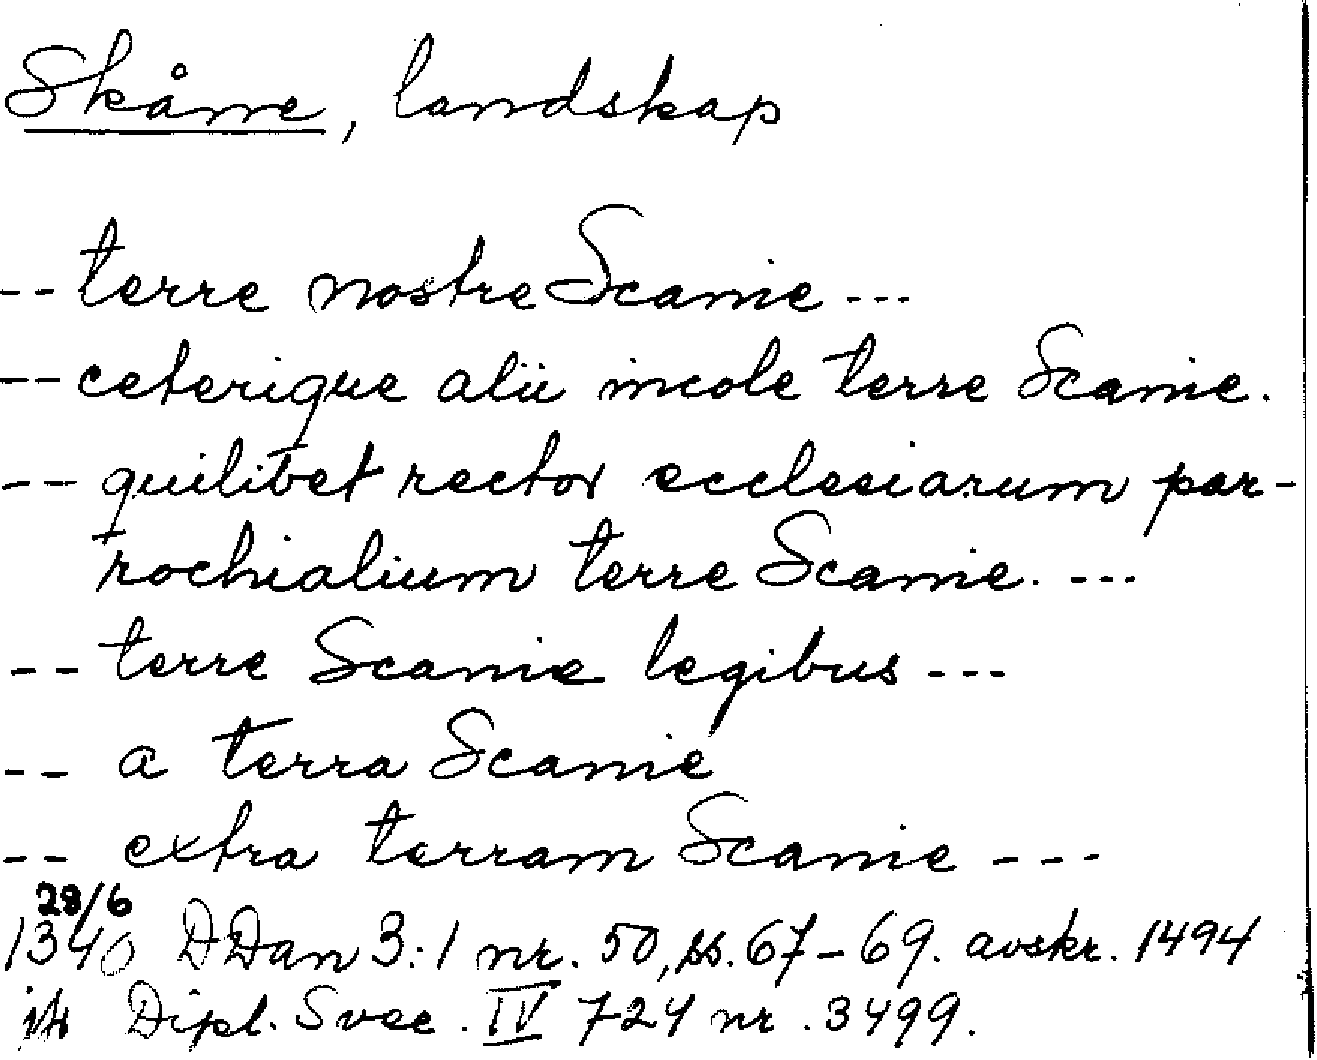 Skåne, landskap
-- terre nostre Scanie ---
-- ceterique alii incole terre Scanie.
-- quilibet rector ecclesiarum par-
rochialium terre Scanie. ---
-- terre Scanie legibus ---
-- a terra Scanie
-- extra terram Scanie ---
28/6
1340 DDan 3:1 nr. 50, ss. 67-69. avskr. 1494
Dipl. Svec. IV 724 nr. 3499.